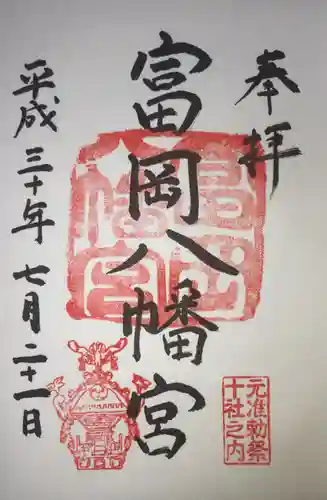 奉拝
元准勅祭
十社之内
富岡八幡宮
平成三十年七月二十一日
富岡
八幡宮